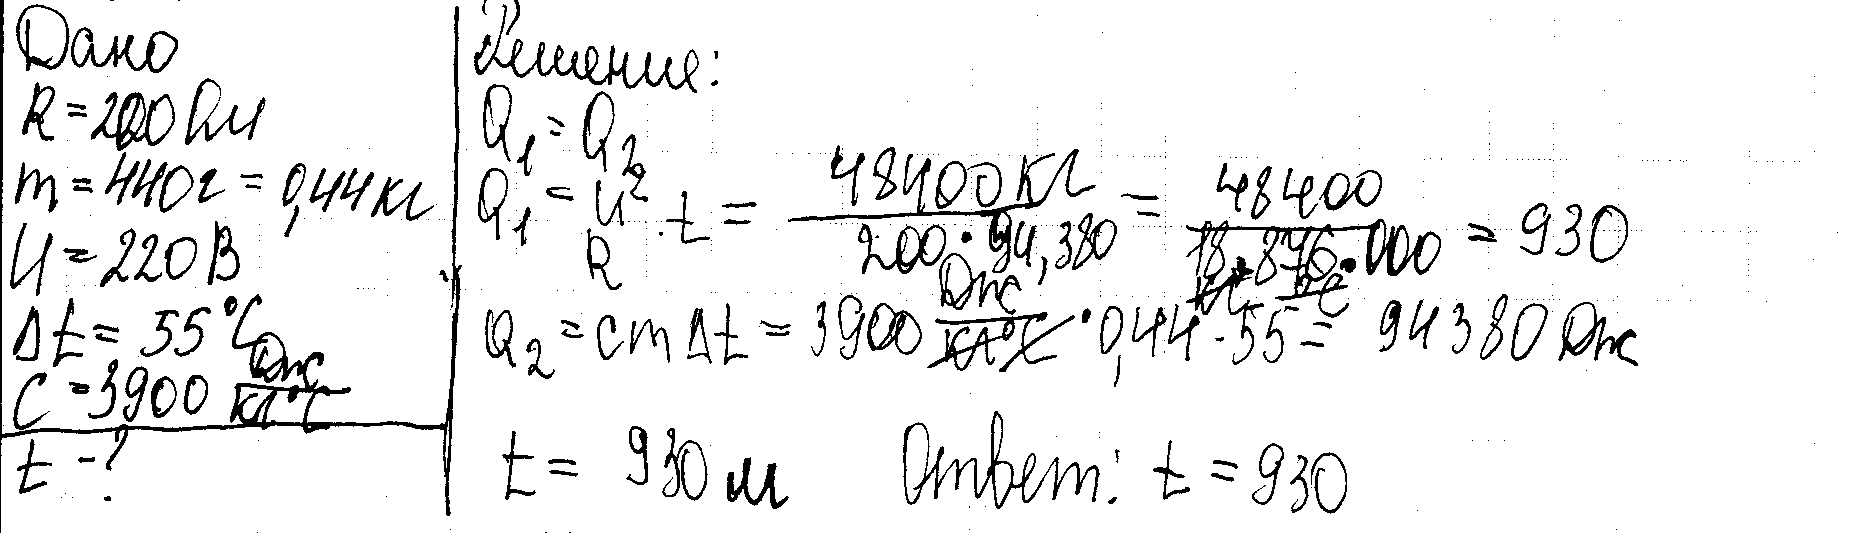 Дано
R = 200 Ом
m = 440 г = 0,44 кг
U = 220 В
Δt = 55 °C
C = 3900 Дж/кг°C
t - ?
Решение:
Q₁ = Q₂
Q₁ = U²/R · t = 48400 кг / 200 · 94,380 = 48400 / 18.876.000 = 930
Q₂ = cmΔt = 3900 Дж/кг°C · 0,44 · 55 = 94380 Дж
t = 930 м
Ответ: t = 930